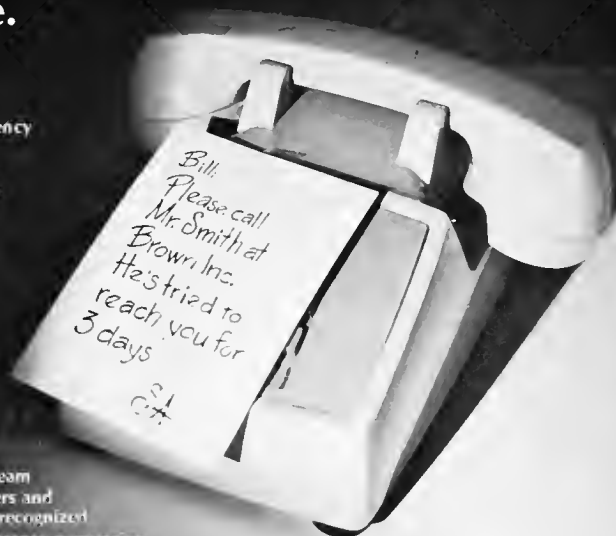 e.
ency
Bill:
Please call
Mr. Smith at
Brown Inc.
He's tried to
reach you for
3 days
eam
ers and
recognized